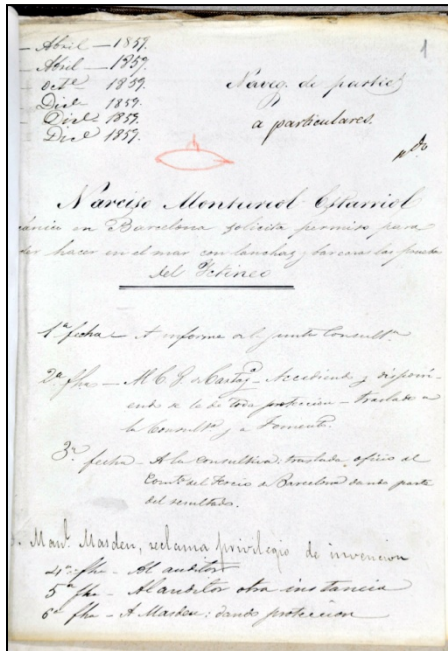 1
- Abril - 1859.
- Abril - 1859
- Octe 1859.
Dice 1859.
Dice 1859.
Dice 1859.
Naveg. de partic.
a particulares.
Narciso Monturiol Estarriol
en Barcelona solicita permiso para
hacer en el mar con lanchas y barcazas las pruebas
del Ictineo
1ª fecha - A informe de la junta Consultª.
2ª fha - Accediendo y disponi-
endo se le de toda proteccion - traslado a
la Consultª y a Fomento.
3ª fecha - A la Consultiva: traslada oficio al
Comte del Tercio de Barcelona dando parte
del resultado.
Manl. Masdeu, reclama privilegio de invencion
4ª fha - Al auditor
5ª fha - Al auditor otra instancia
6ª fha - A Masdeu: dando proteccion